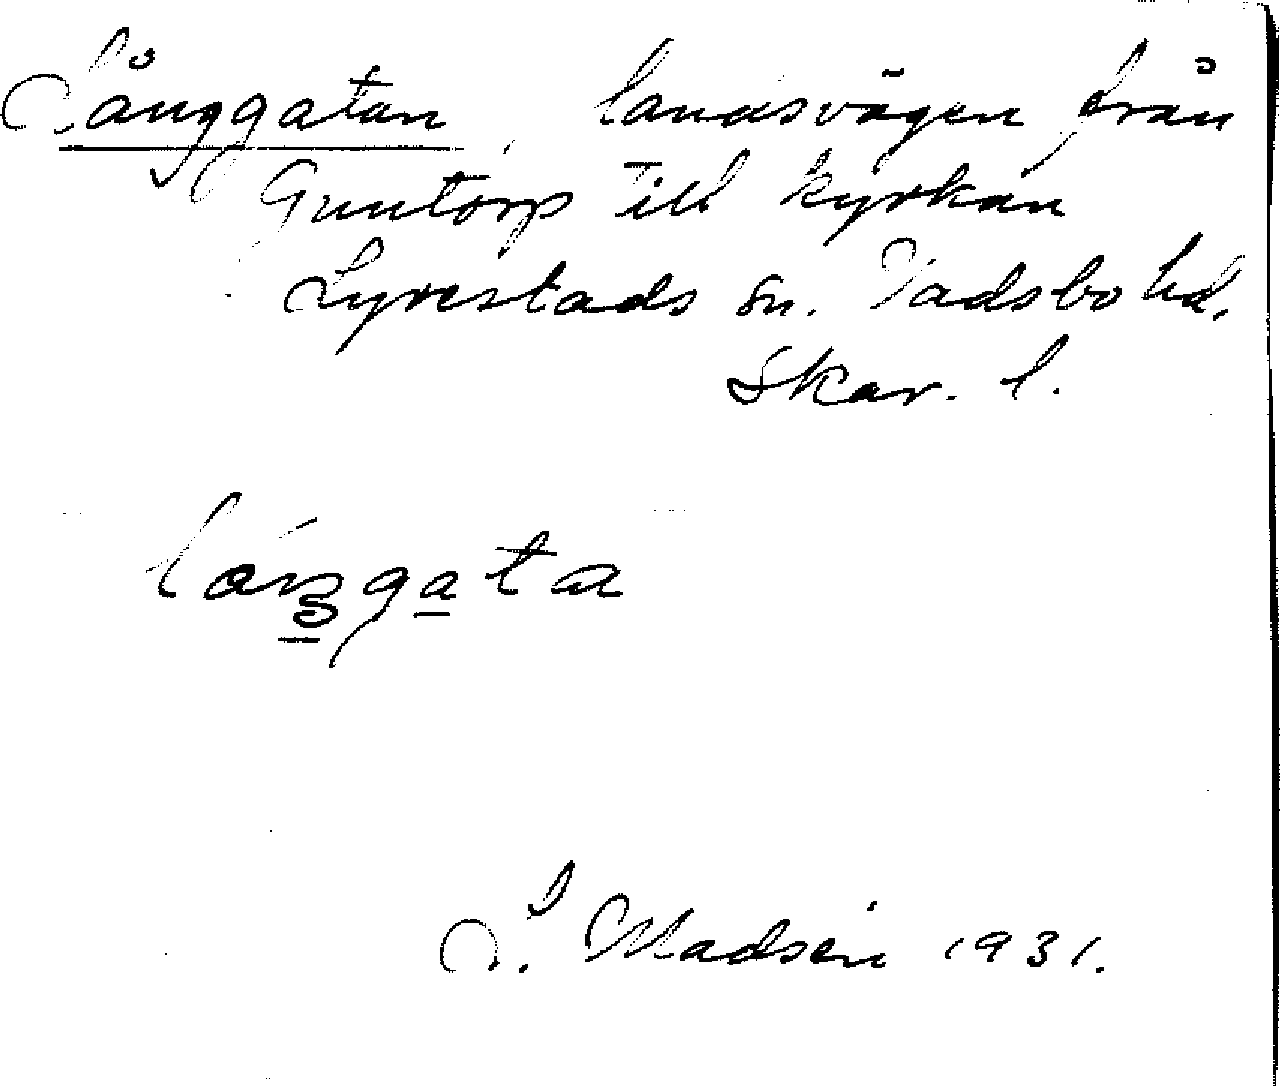 Långgatan, landsvägen från
Guntorp till kyrkan
Lyrestads sn. Vadsbo hd.
Skar. l.
Madsén 1931.